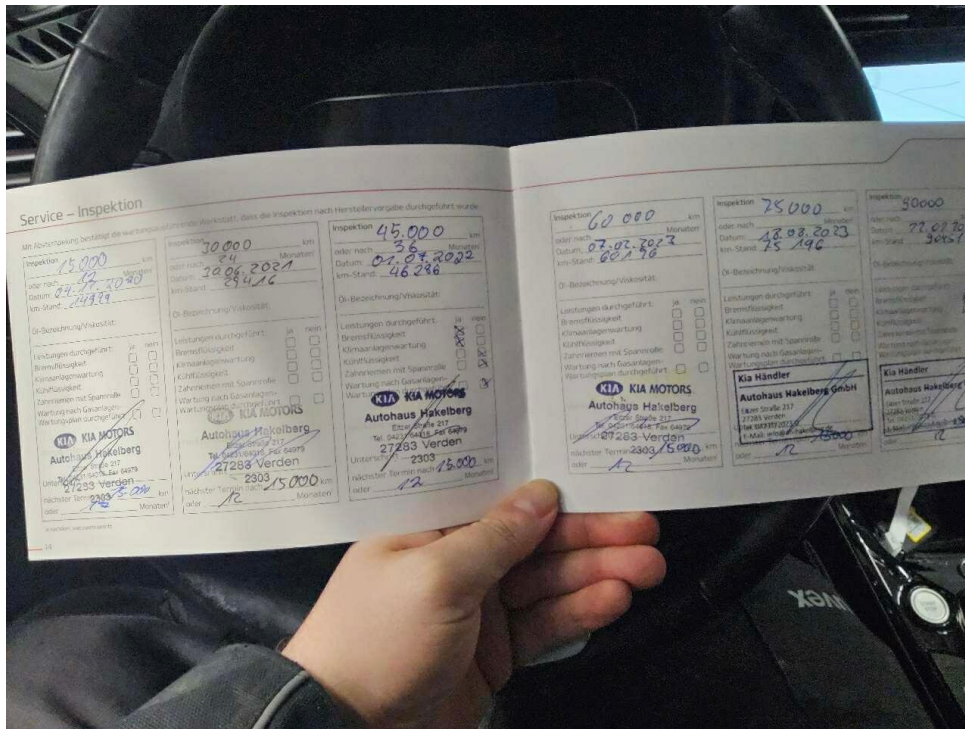 Service – Inspektion
Mit Abstempelung bestätigt die wartungsausführende Werkstatt, dass die Inspektion nach Herstellervorgabe durchgeführt wurde
Inspektion 15000 km
oder nach 12 Monaten
Datum: 04.11.2020
km-Stand:
Öl-Bezeichnung/Viskosität:
Leistungen durchgeführt: ja nein
Bremsflüssigkeit
Klimaanlagenwartung
Kühlflüssigkeit
Zahnriemen mit Spannrolle
Wartung nach Gasanlagen-
Wartungsplan durchgeführt
KIA KIA MOTORS
Autohaus Hakelberg
Eitzer Straße 217
27283 Verden
2303
nächster Termin nach 15.000 km
oder 12 Monaten
14
Inspektion 30000 km
oder nach 24 Monaten
Datum: 30.06.2021
km-Stand: 29416
Öl-Bezeichnung/Viskosität:
Leistungen durchgeführt: ja nein
Bremsflüssigkeit
Klimaanlagenwartung
Kühlflüssigkeit
Zahnriemen mit Spannrolle
Wartung nach Gasanlagen-
Wartungsplan durchgeführt
KIA KIA MOTORS
Autohaus Hakelberg
Eitzer Straße 217
27283 Verden
2303
nächster Termin nach 15000 km
oder 12 Monaten
Inspektion 45.000 km
oder nach 36 Monaten
Datum: 01.07.2022
km-Stand: 46286
Öl-Bezeichnung/Viskosität:
Leistungen durchgeführt: ja nein
Bremsflüssigkeit
Klimaanlagenwartung
Kühlflüssigkeit
Zahnriemen mit Spannrolle
Wartung nach Gasanlagen-
Wartungsplan durchgeführt
KIA KIA MOTORS
Autohaus Hakelberg
Eitzer Straße 217
Tel. 04231/64916 Fax 64979
27283 Verden
Unterschrift 2303
nächster Termin nach 15.000 km
oder 12 Monaten
Inspektion 60 000 km
oder nach Monaten
Datum: 07.02.2023
km-Stand: 60196
Öl-Bezeichnung/Viskosität:
Leistungen durchgeführt: ja nein
Bremsflüssigkeit
Klimaanlagenwartung
Kühlflüssigkeit
Zahnriemen mit Spannrolle
Wartung nach Gasanlagen-
Wartungsplan durchgeführt
KIA KIA MOTORS
Autohaus Hakelberg
Eitzer Straße 217
27283 Verden
nächster Termin 2303 15000 km
oder 12 Monaten
Inspektion 75000 km
oder nach Monaten
Datum: 18.08.2023
km-Stand: 75 196
Öl-Bezeichnung/Viskosität:
Leistungen durchgeführt: ja nein
Bremsflüssigkeit
Klimaanlagenwartung
Kühlflüssigkeit
Zahnriemen mit Spannrolle
Wartung nach Gasanlagen-
Wartungsplan durchgeführt
Kia Händler
Autohaus Hakelberg GmbH
Eitzer Straße 217
27283 Verden
15000 km
oder 12 Monaten
Inspektion 90000
oder nach
Datum:
km-Stand
Öl-Bezeichnung/Viskosität:
Leistungen durchgeführt:
Bremsflüssigkeit
Klimaanlagenwartung
Kühlflüssigkeit
Kia Händler
Autohaus Hakelberg
Eitzer Straße 217
oder 12
START
STOP